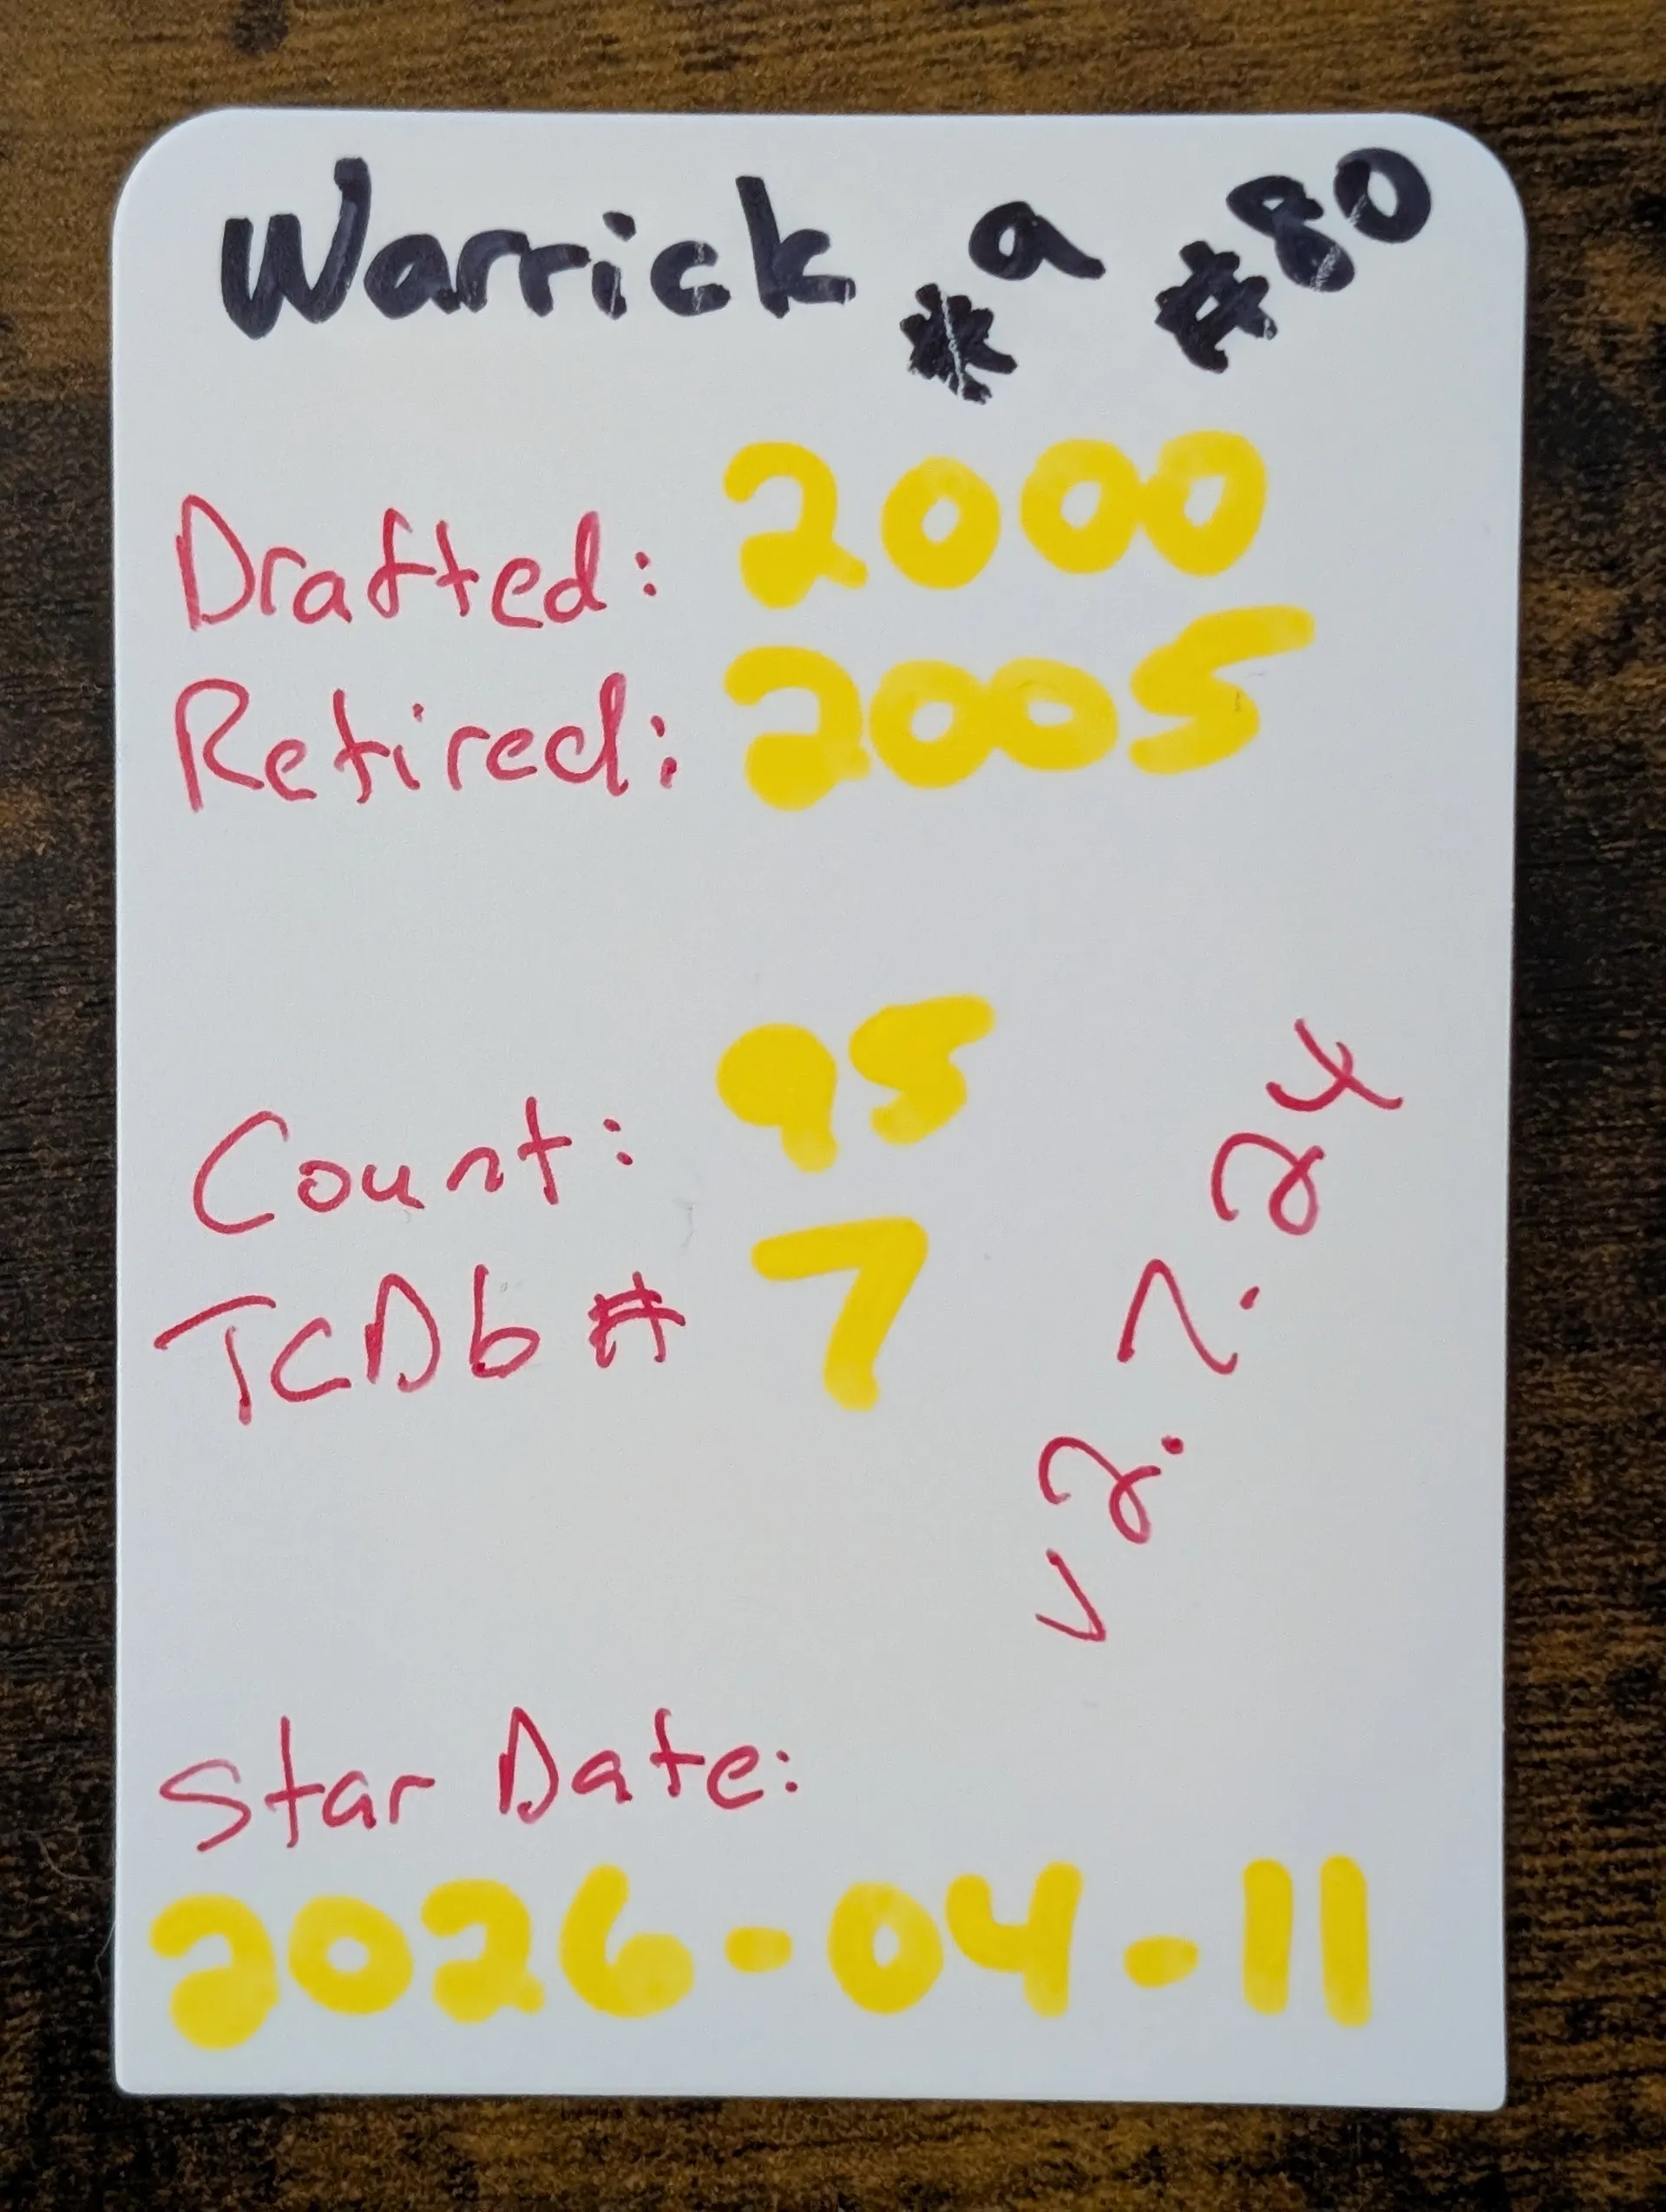 Warrick #9 #80
Drafted: 2000
Retired: 2005
Count: 95
TCDb # 7
v2.2.24
Star Date:
2026-04-11